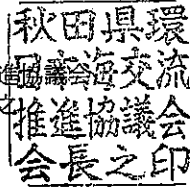 秋田県環
日本海交流
推進協議会
会長之印